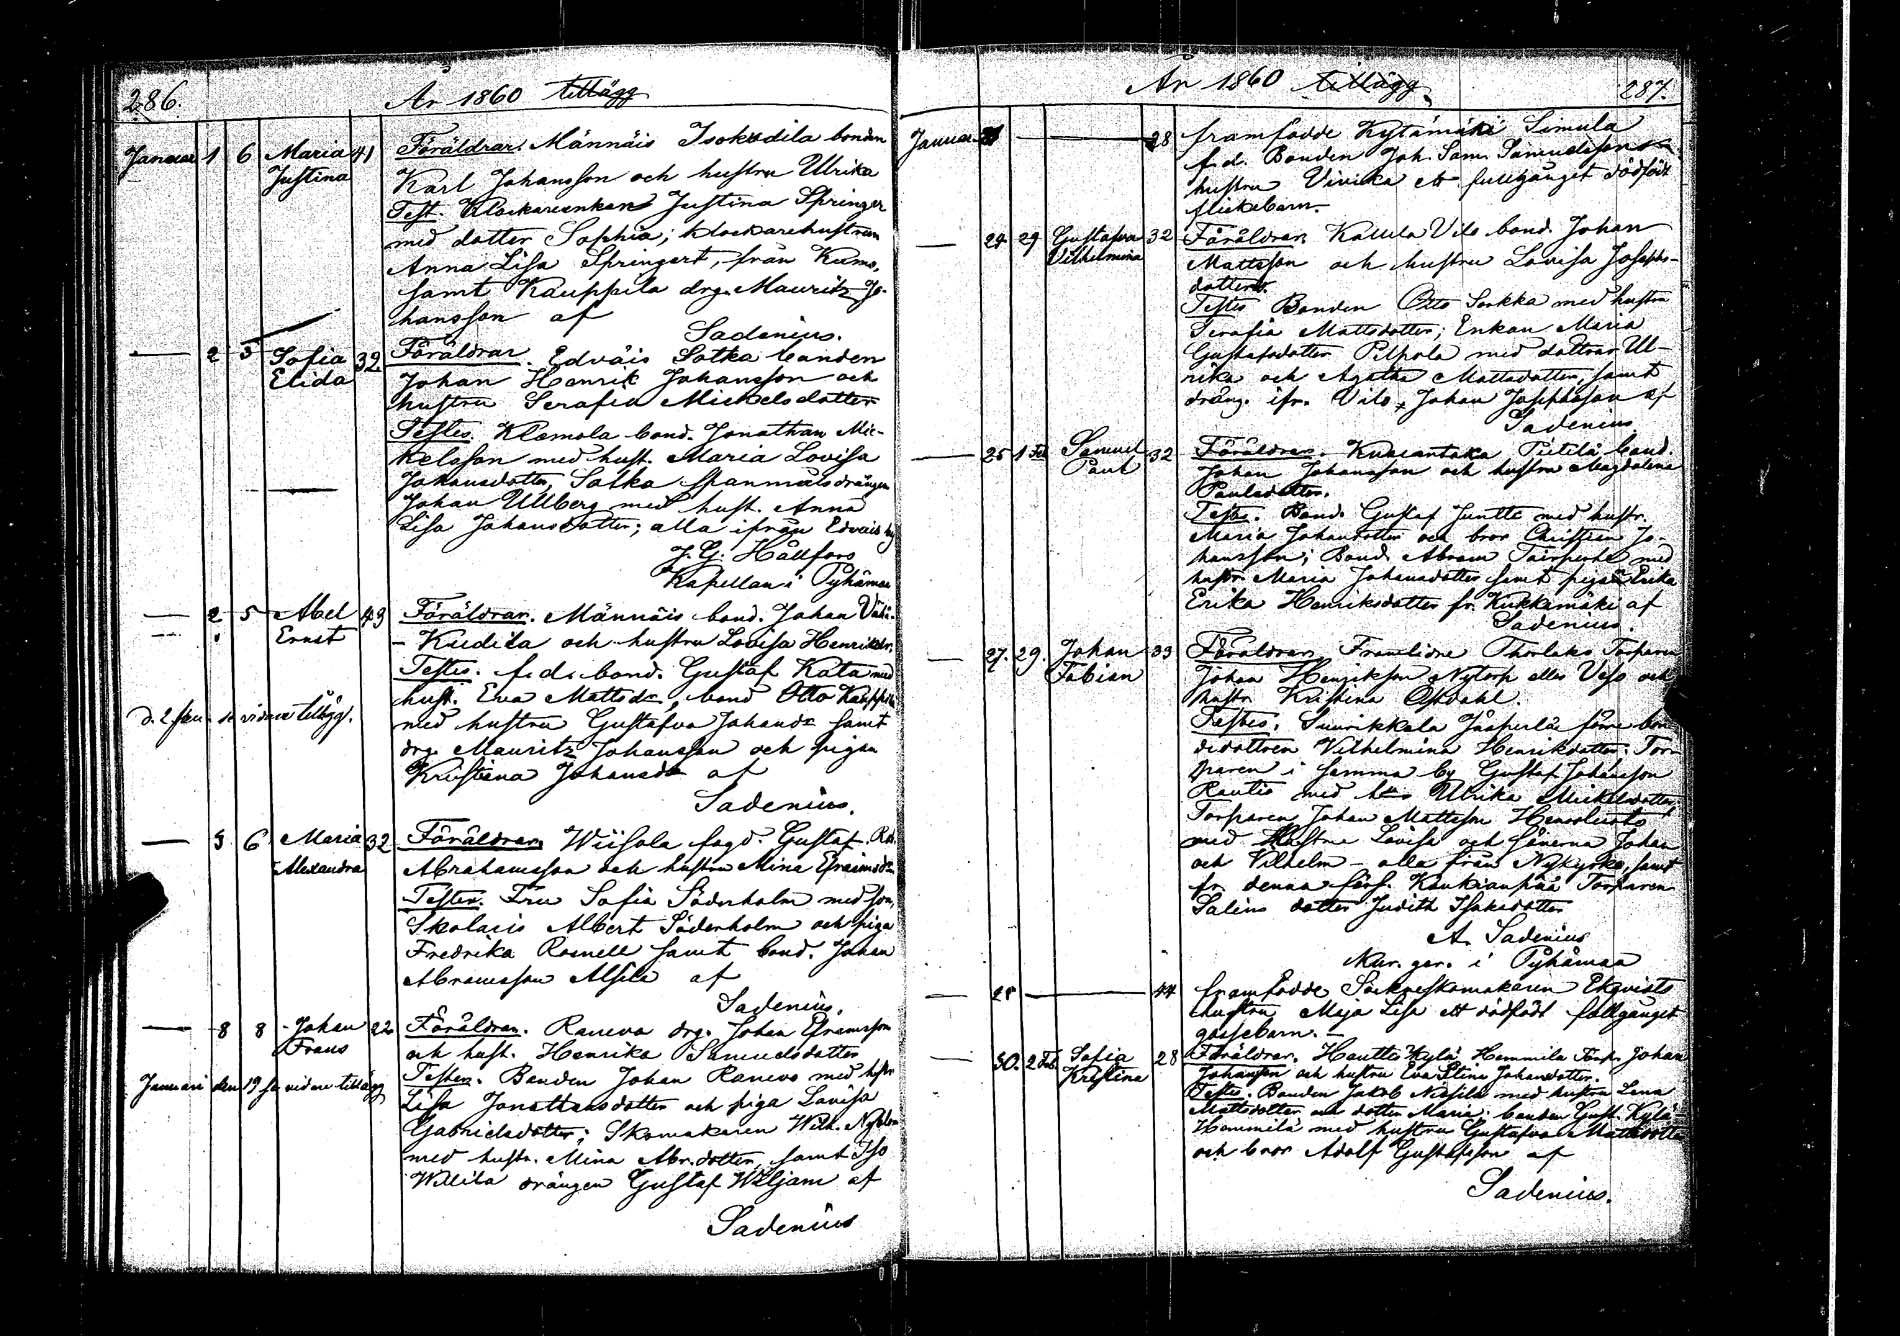 286.
År 1860 tillägg
Januari 1 6 Maria 41 Föräldrar. Männäis Isokudila bonden
Justina Karl Johansson och hustru Ulrika
Test. Klockareenkan Justina Springer
med dotter Sophia; klockarehustrun
Anna Lisa Springert, från Kumo,
samt Kauppila drg. Mauritz Jo-
hansson af
Sadenius.
— 2 5 Sofia 32 Föräldrar. Edväis Sotka bonden
Elida Johan Henrik Johansson och
hustru Serafia Mickelsdotter
Testes. Klemola bond. Jonathan Mic-
kelsson med hust. Maria Lovisa
Johansdotter, Sotka spanmålsdrängen
Johan Ullberg med hust. Anna
Lisa Johansdotter; alla ifrån Edväis by
J. G. Hällfors
Kapellan i Pyhämaa
— 2 5 Abel 43 Föräldrar. Männäis bond. Johan Vähä-
Ernst Kudila och hustru Lovisa Henriksdr.
Testes. f.d. bond. Gustaf Kata med
hust. Eva Mattsdr, bond Otto Kauppila
d. 2 Jan. se vidare tillägg.
med hustru Gustafva Johansdr samt
drg. Mauritz Johansson och pigan
Kristina Johansdr af
Sadenius.
— 5 6 Maria 32 Föräldrar. Wiisola fogd. Gustaf
Alexandra Abrahamsson och hustru Mina Efraimsdr
Testes. Fru Sofia Söderholm med son,
Skolaris Albert Söderholm och piga
Fredrika Rosnell samt bond. Johan
Abramsson Alsila af
Sadenius.
— 8 8 Johan 22 Föräldrar. Ranevo drg. Johan Eframsson
Frans och hust. Henrika Samuelsdotter
Januari den 19 se vidare tillägg
Testes. Bonden Johan Ranevo med hustr
Lisa Jonathansdotter och piga Lovisa
Gabrielsdotter; Skomakaren Wilh. Nyblom
med hustr. Mina Abr.dotter samt Iso
Willila drängen Gustaf Wiljam af
Sadenius
År 1860 tillägg
287.
Januari — 28 framfödde Kytämäki Simula
f.d. Bonden Joh. Sam. Samuelssons
hustru Vivika ett fullgånget dödfödt
flickebarn.
— 24 29 Gustafva 32 Föräldrar. Kallela Vilo bond. Johan
Vilhelmina Mattsson och hustru Lovisa Josephs-
dotter.
Testes Bonden Otto Sorkka med hustru
Serafia Mattsdotter; Enkan Maria
Gustafsdotter Pilpola med dottrar Ul-
rika och Agatha Mattsdotter, samt
dräng. ifr. Vilo, Johan Josephsson af
Sadenius.
— 25 1 Feb Samuel 32 Föräldrar. Kuuiantaka Pietilä bond.
Paul Johan Johansson och hustru Magdalena
Paulsdotter.
Testes. Bond. Gustaf Juntti med hustr.
Maria Johansdotter och bror Christian Jo-
hansson; Bond. Abram med
hustr Maria Johansdotter samt pigan Erika
Erika Henriksdotter fr. Kukkamäki af
Sadenius.
— 27. 29. Johan 33 Föräldrar Framlidne Thorlaks Torparen
Fabian Johan Henriksson Nytorp eller Veso och
hustr Kristina
Testes. Suurikkala Jäsperlä
dedottren Vilhelmina Henriksdotter; Tor-
paren i samma by Gustaf Johansson
Rautio med h:u Ulrika Mickelsdotter,
Torparen Johan Mattsson
med hustru Lovisa och sönerna Johan
och Vilhelm – alla från Nykyrko, samt
fr. denna förs. Kaukianpää Torparen
Salins dotter Judith Isaksdotter
A. Sadenius
i Pyhämaa
— 28 — 44 framfödde Sockneskomakaren Ekqvists
hustru Maja Lisa ett dödfödt fullgånget
gossebarn. —
— 30. 2 Feb. Sofia 28 Föräldrar. Hauttis Kylä Hemmilä Torp. Johan
Kristina Johansson och hustru Eva Stina Johansdotter.
Testes. Bonden Jakob Nissilä med hustru Lena
Mattsdotter och dotter Maria; bonden Gust. Kylä
Hemmilä med hustru Gustafva Mattsdotter
och bror Adolf Gustafsson af
Sadenius.